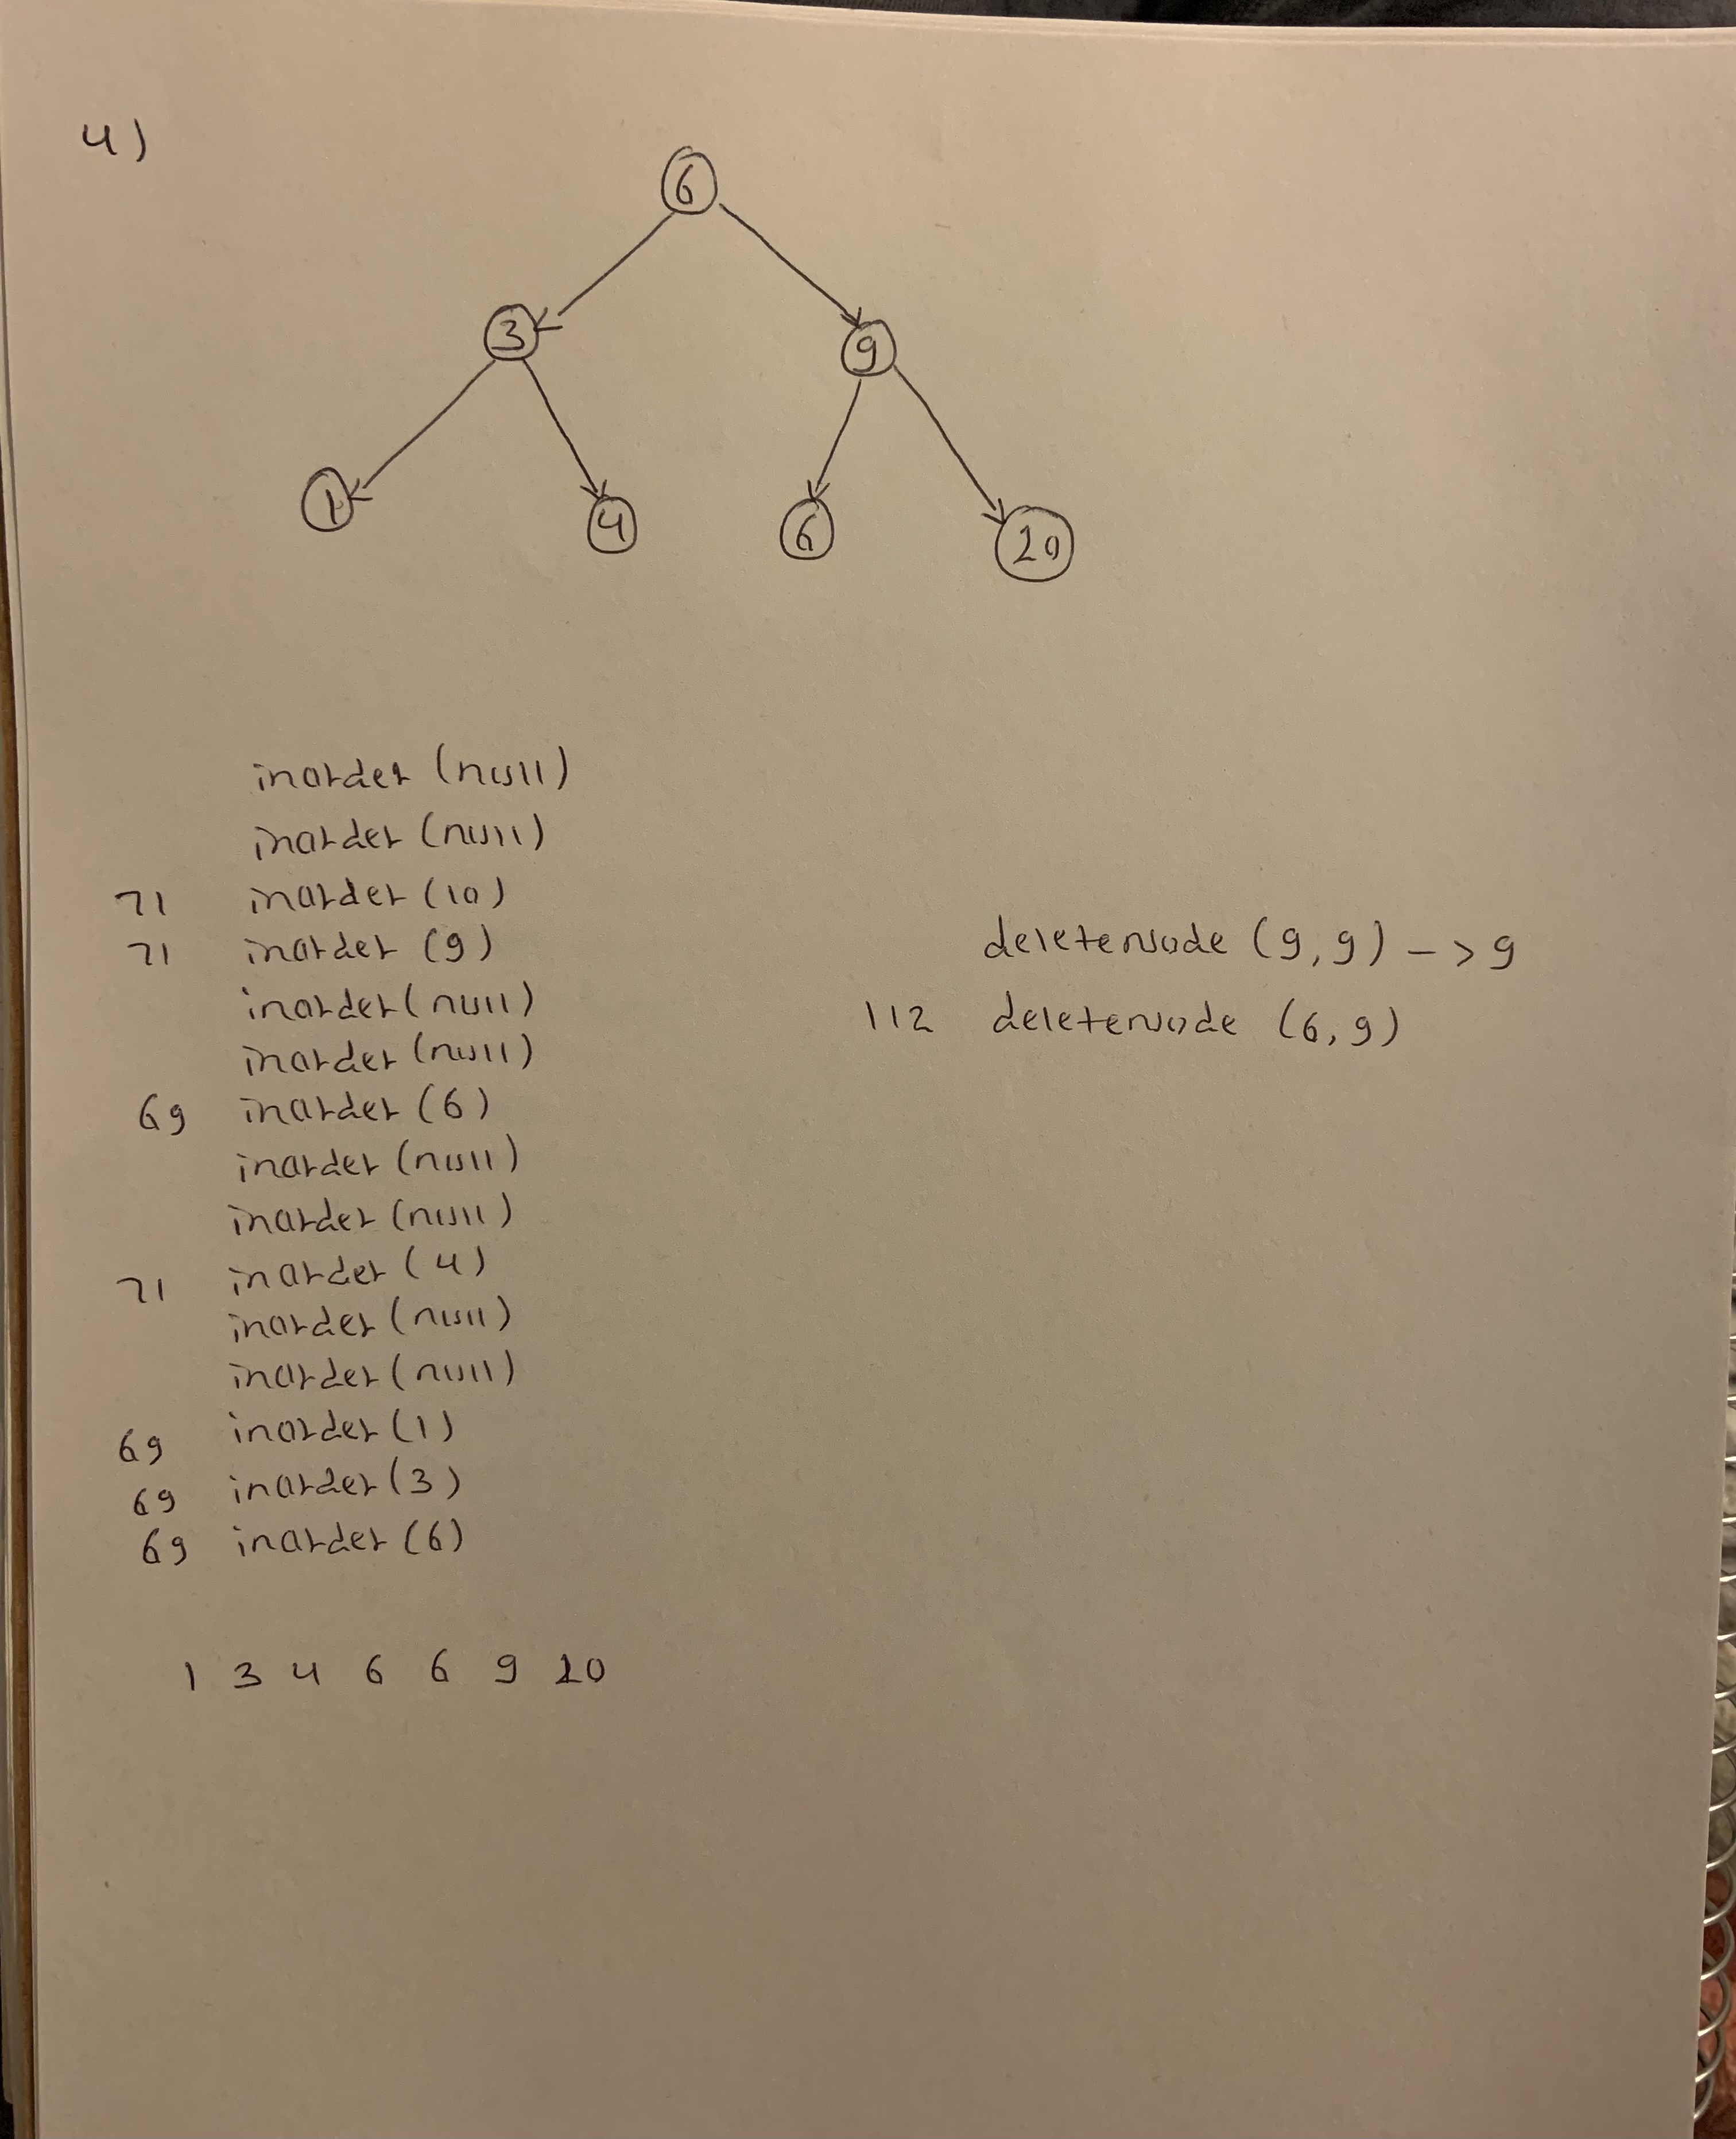 4)
6
3 9
1 4 6 20
inorder (null)
inorder (null)
71 inorder (10)
71 inorder (9)
inorder (null)
inorder (null)
69 inorder (6)
inorder (null)
inorder (null)
71 inorder (4)
inorder (null)
inorder (null)
69 inorder (1)
69 inorder (3)
69 inorder (6)
deletenode (9,9) -> 9
112 deletenode (6,9)
1 3 4 6 6 9 20